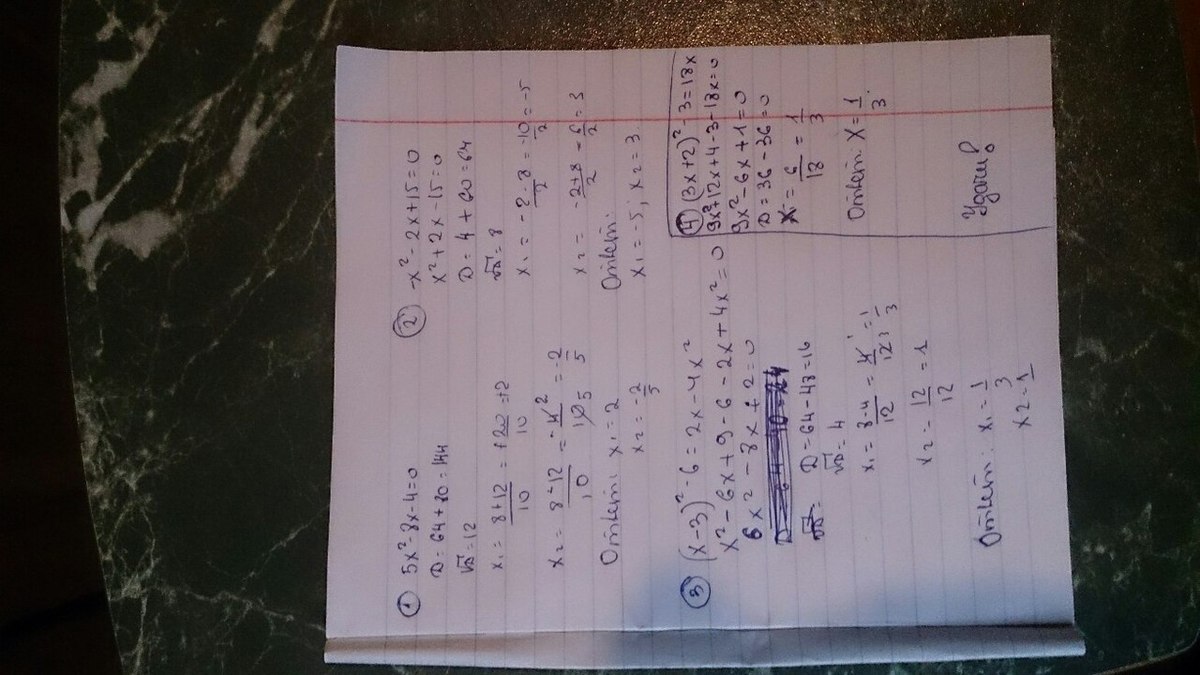 ① 5x²-8x-4=0
D=64+80=144
√D=12
x₁=(8+12)/10=+20/10=+2
x₂=(8-12)/10=-4/10=-2/5
Ответ: x₁=2
x₂=-2/5
② -x²-2x+15=0
x²+2x-15=0
D=4+60=64
√D=8
x₁=(-2-8)/2=-10/2=-5
x₂=(-2+8)/2=6/2=3
Ответ:
x₁=-5; x₂=3
③ (x-3)²-6=2x-4x²
x²-6x+9-6-2x+4x²=0
x²-8x+2=0
D=64-48=16
√D=4
x₁=(8-4)/12=4/12=1/3
x₂=12/12=1
Ответ: x₁=1/3
x₂=1
④ (3x+2)²-3=18x
9x²+12x+4-3-18x=0
9x²-6x+1=0
D=36-36=0
x₁=6/18=1/3
Ответ: x=1/3.
Удачи!